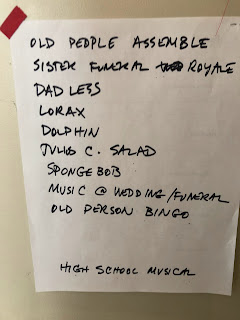 OLD PEOPLE ASSEMBLE
SISTER FUNERAL ROYALE
DADLESS
LORAX
DOLPHIN
JULIUS C. SALAD
SPONGEBOB
MUSIC @ WEDDING/FUNERAL
OLD PERSON BINGO
HIGH SCHOOL MUSICAL